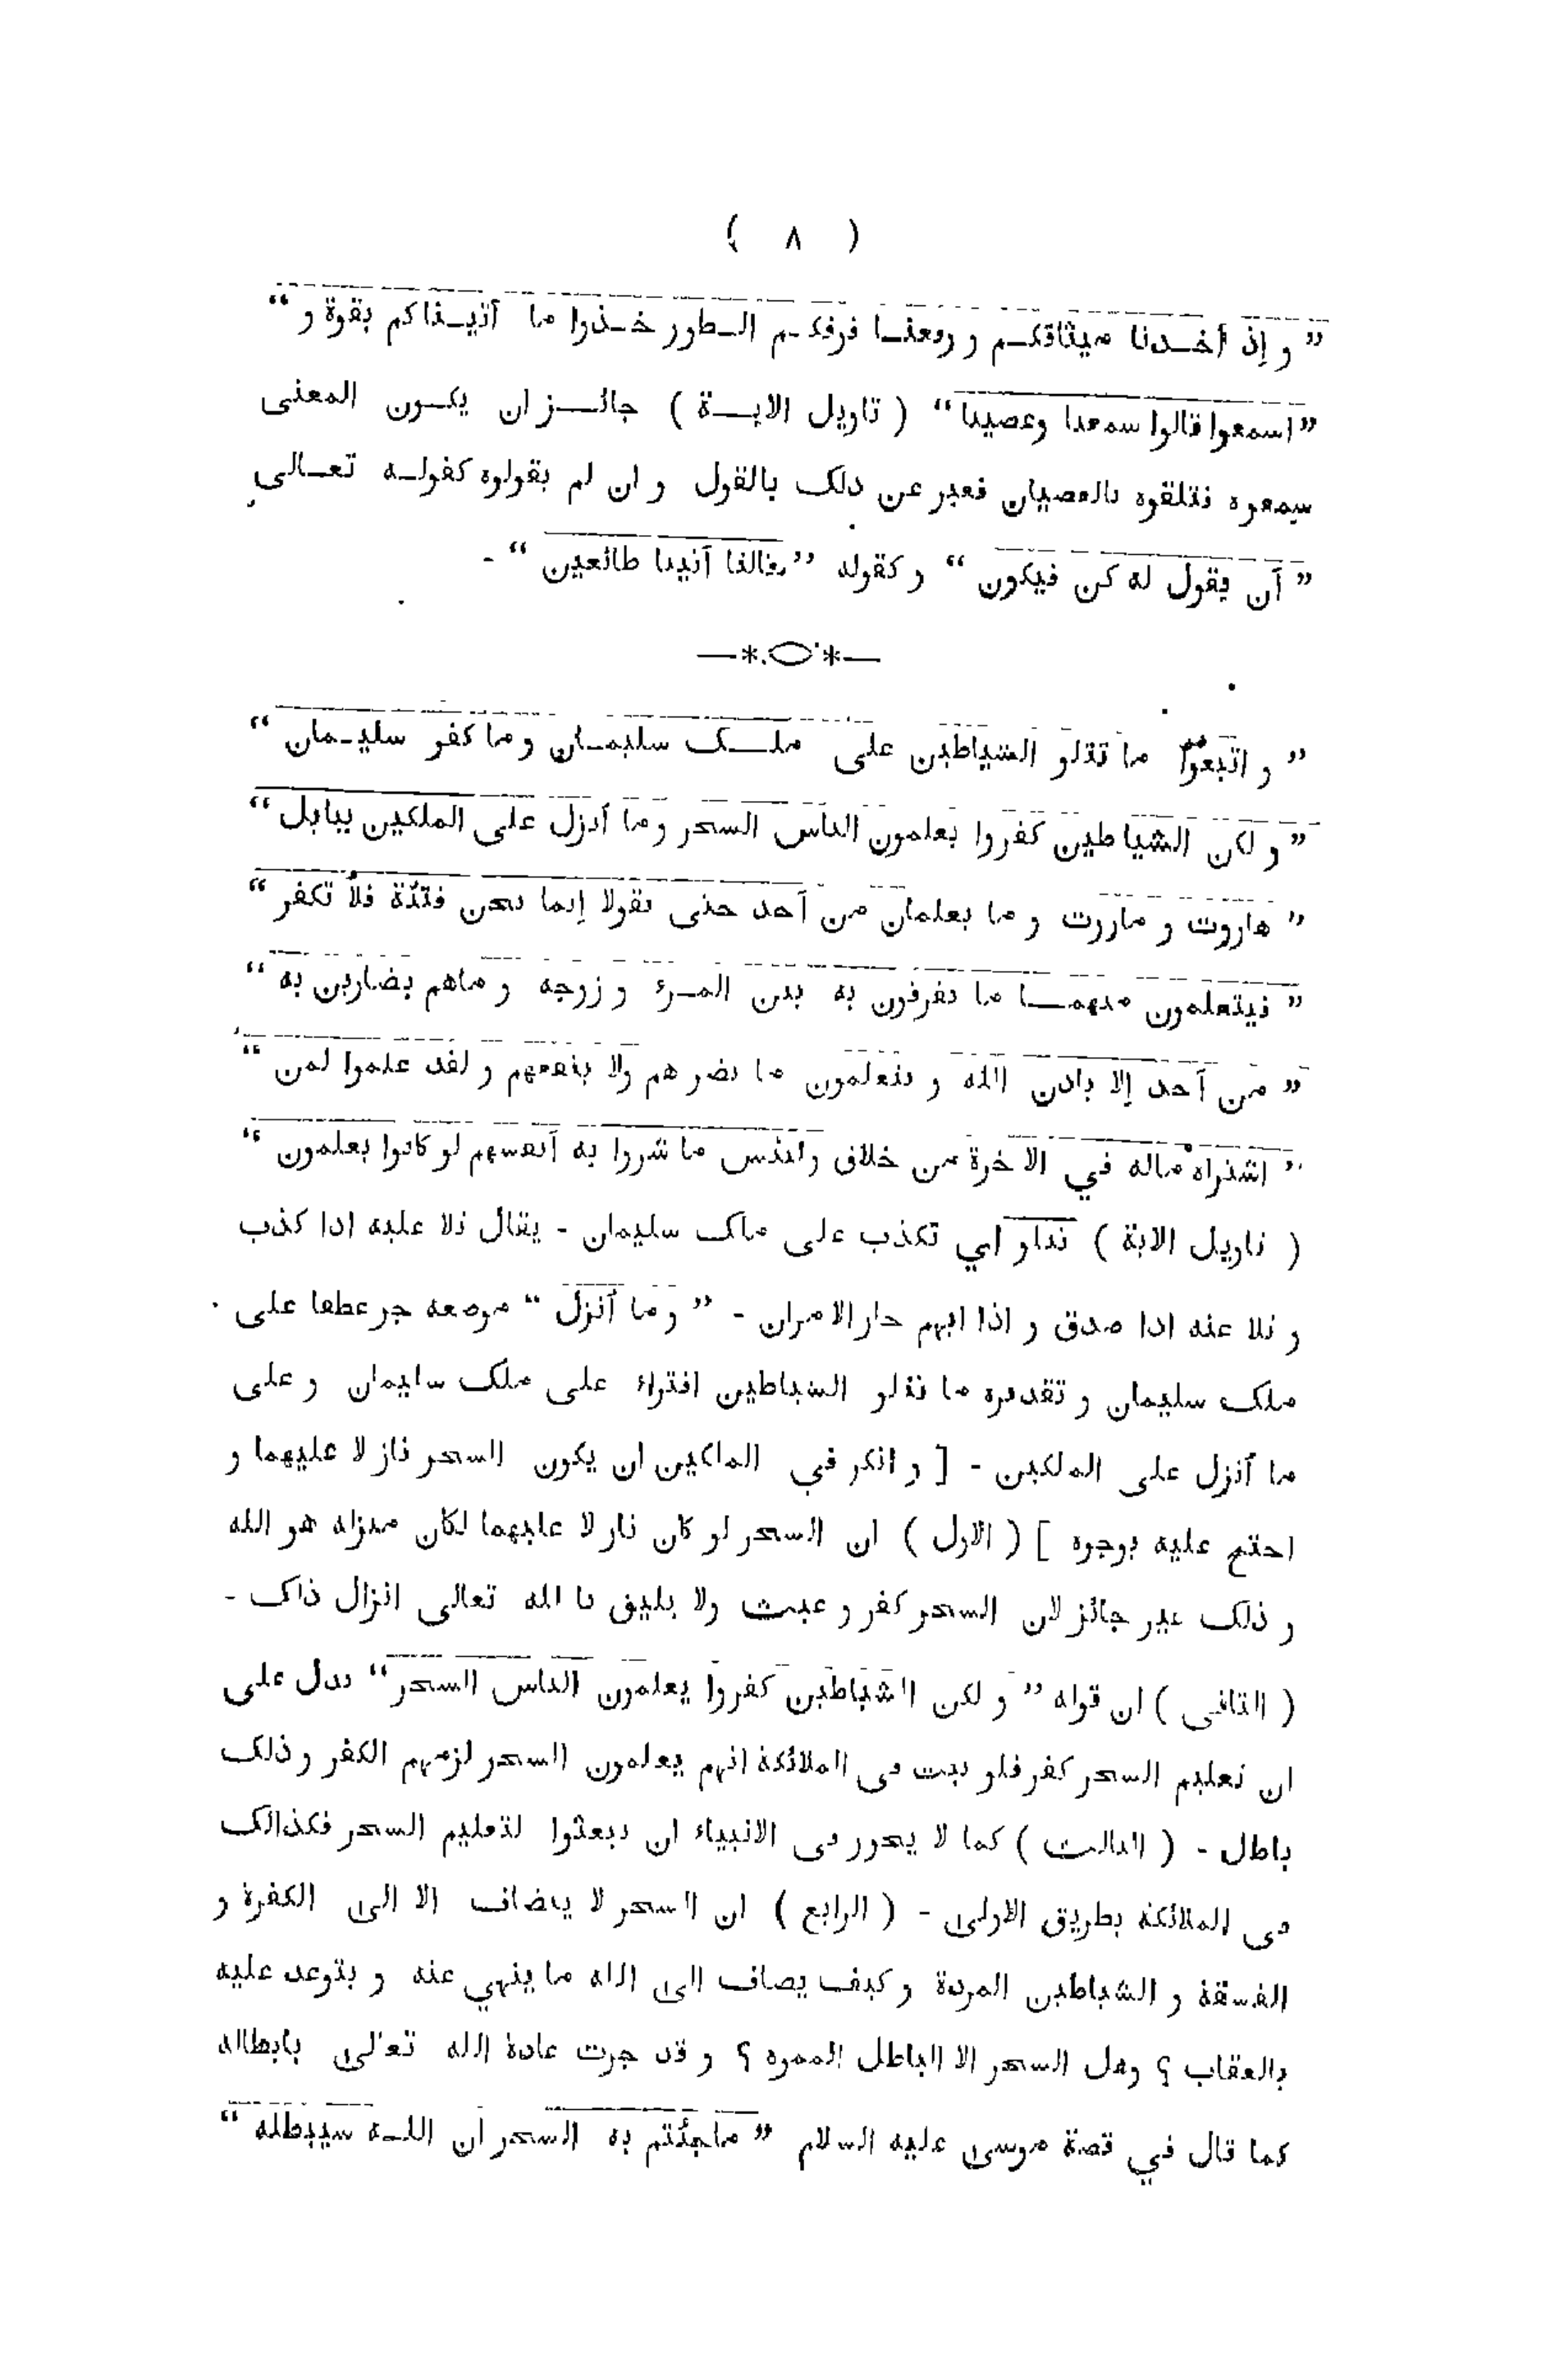 ( ٨ )
” و إذ أخـدنا ميثاقكـم و رفعنـا فوقكـم الـطور خـذوا ما آتيـناكم بقوة و “
” اسمعوا قالوا سمعنا وعصينا “ ( تاويل الايـة ) جائـز ان يكـون المعنى
سمعوه فتلقوه بالعصيان فعبر عن ذلك بالقول و ان لم يقولوه كقولـه تعـالى
” أن يقول له كن فيكون “ و كقوله ” فقالتا أتينا طائعين “ -
” و اتبعوا ما تتلو الشياطين على ملـك سليمـان و ما كفر سليـمان “
” و لكن الشياطين كفروا يعلمون الناس السحر وما أنزل على الملكين ببابل “
” هاروت و ماروت و ما يعلمان من أحد حتى يقولا إنما نحن فتنة فلا تكفر “
” فيتعلمون منهمـا ما يفرقون به بين المـرء و زوجه و ماهم بضارين به “
” من أحد إلا باذن الله و يتعلمون ما يضر هم ولا ينفعهم و لقد علموا لمن “
” اشتراه ماله في الاخرة من خلاق ولبئس ما شروا به أنفسهم لو كانوا يعلمون “
( تاويل الاية ) تتلو اي تكذب على ملك سليمان - يقال تلا عليه اذا كذب
و تلا عنه اذا صدق و اذا ابهم جاز الامران - ” و ما أنزل “ موضعه جر عطفا على
ملك سليمان و تقديره ما تتلو الشياطين افتراء على ملك سليمان و على
ما أنزل على الملكين - [ و انكر في الملكين ان يكون السحر نازلا عليهما و
احتج عليه بوجوه ] ( الاول ) ان السحر لو كان نازلا عليهما لكان منزله هو الله
و ذلك غير جائز لان السحر كفر و عبث ولا يليق بالله تعالى انزال ذلك -
( الثاني ) ان قوله ” و لكن الشياطين كفروا يعلمون الناس السحر “ يدل على
ان تعليم السحر كفر فلو ثبت في الملائكة انهم يعلمون السحر لزمهم الكفر و ذلك
باطل - ( الثالث ) كما لا يجوز في الانبياء ان يبعثوا لتعليم السحر فكذالك
في الملائكة بطريق الاولى - ( الرابع ) ان السحر لا يضاف الا الى الكفرة و
الفسقة و الشياطين المردة و كيف يضاف الى الله ما ينهي عنه و يتوعد عليه
بالعقاب ؟ وهل السحر الا الباطل المموه ؟ و قد جرت عادة الله تعالى بابطاله
كما قال في قصة موسى عليه السلام ” ماجئتم به السحر ان اللـه سيبطله “